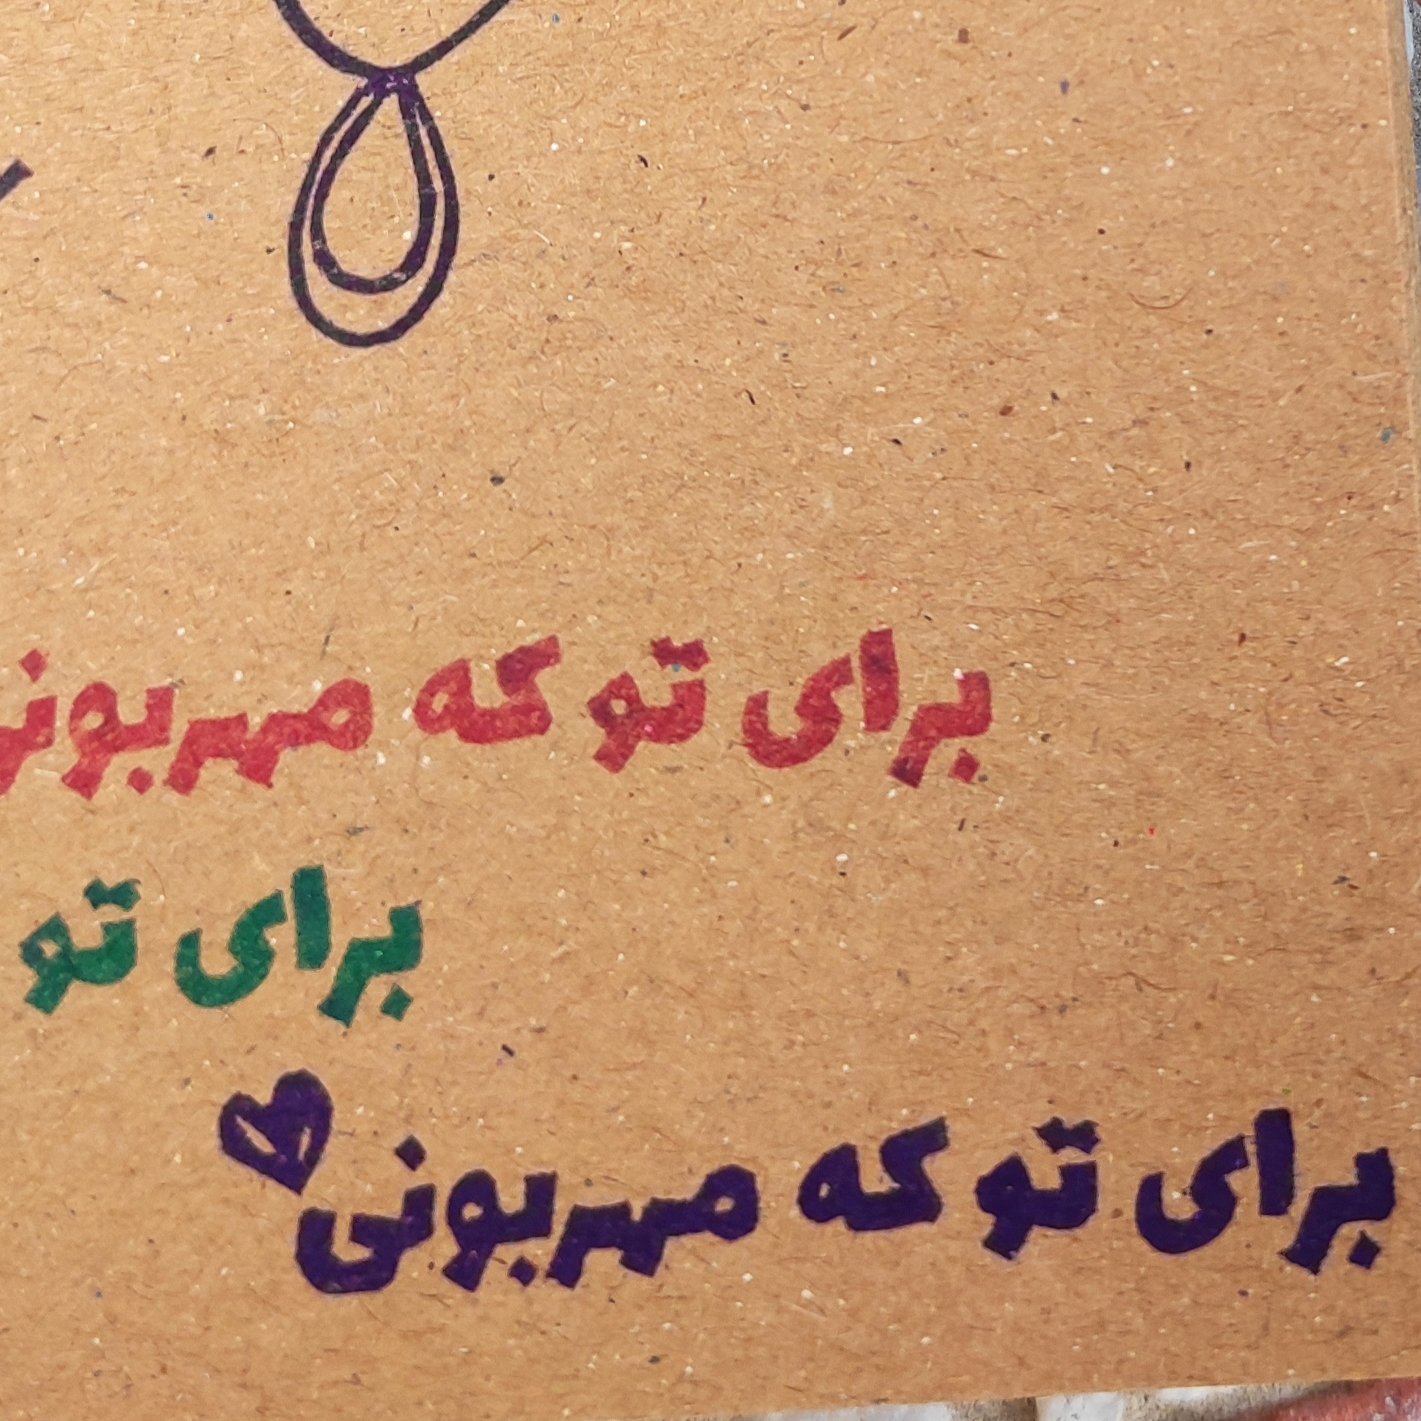 برای تو که مهربونی
برای تو
برای تو که مهربونی